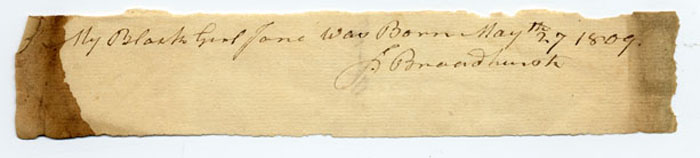 My Black Girl Jane Was Born May the 27 1809.
J Broadhurst